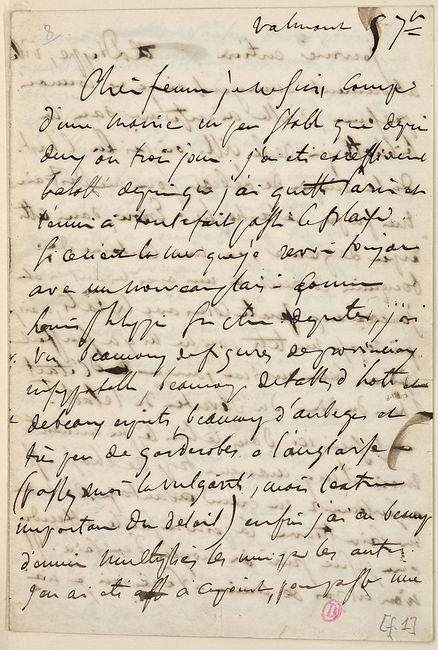 Valmont 5 7bre
Cher je ne suis campé
d'une manière un peu stable que depuis
deux ou trois jours. j'ai été excessivement
balotté depuis que j'ai quitté Paris et
l'ennui a tout à fait passé le plaisir.
si ce n'est la mer que je revois toujours
avec un nouveau plaisir. Comme
Louis Philippe députés, j'ai
vu beaucoup de figures de provinciaux
insupportables, beaucoup de tables d'hôte et
de beaux esprits, beaucoup d'auberges et
très peu de garderobes à l'anglaise
(passez moi la vulgarité, mais l'extrême
importance du détail) enfin j'ai eu beaucoup
d'ennuis multipliés les uns par les autres.
J'en ai été à ce point, pour passer une
[f. 1]